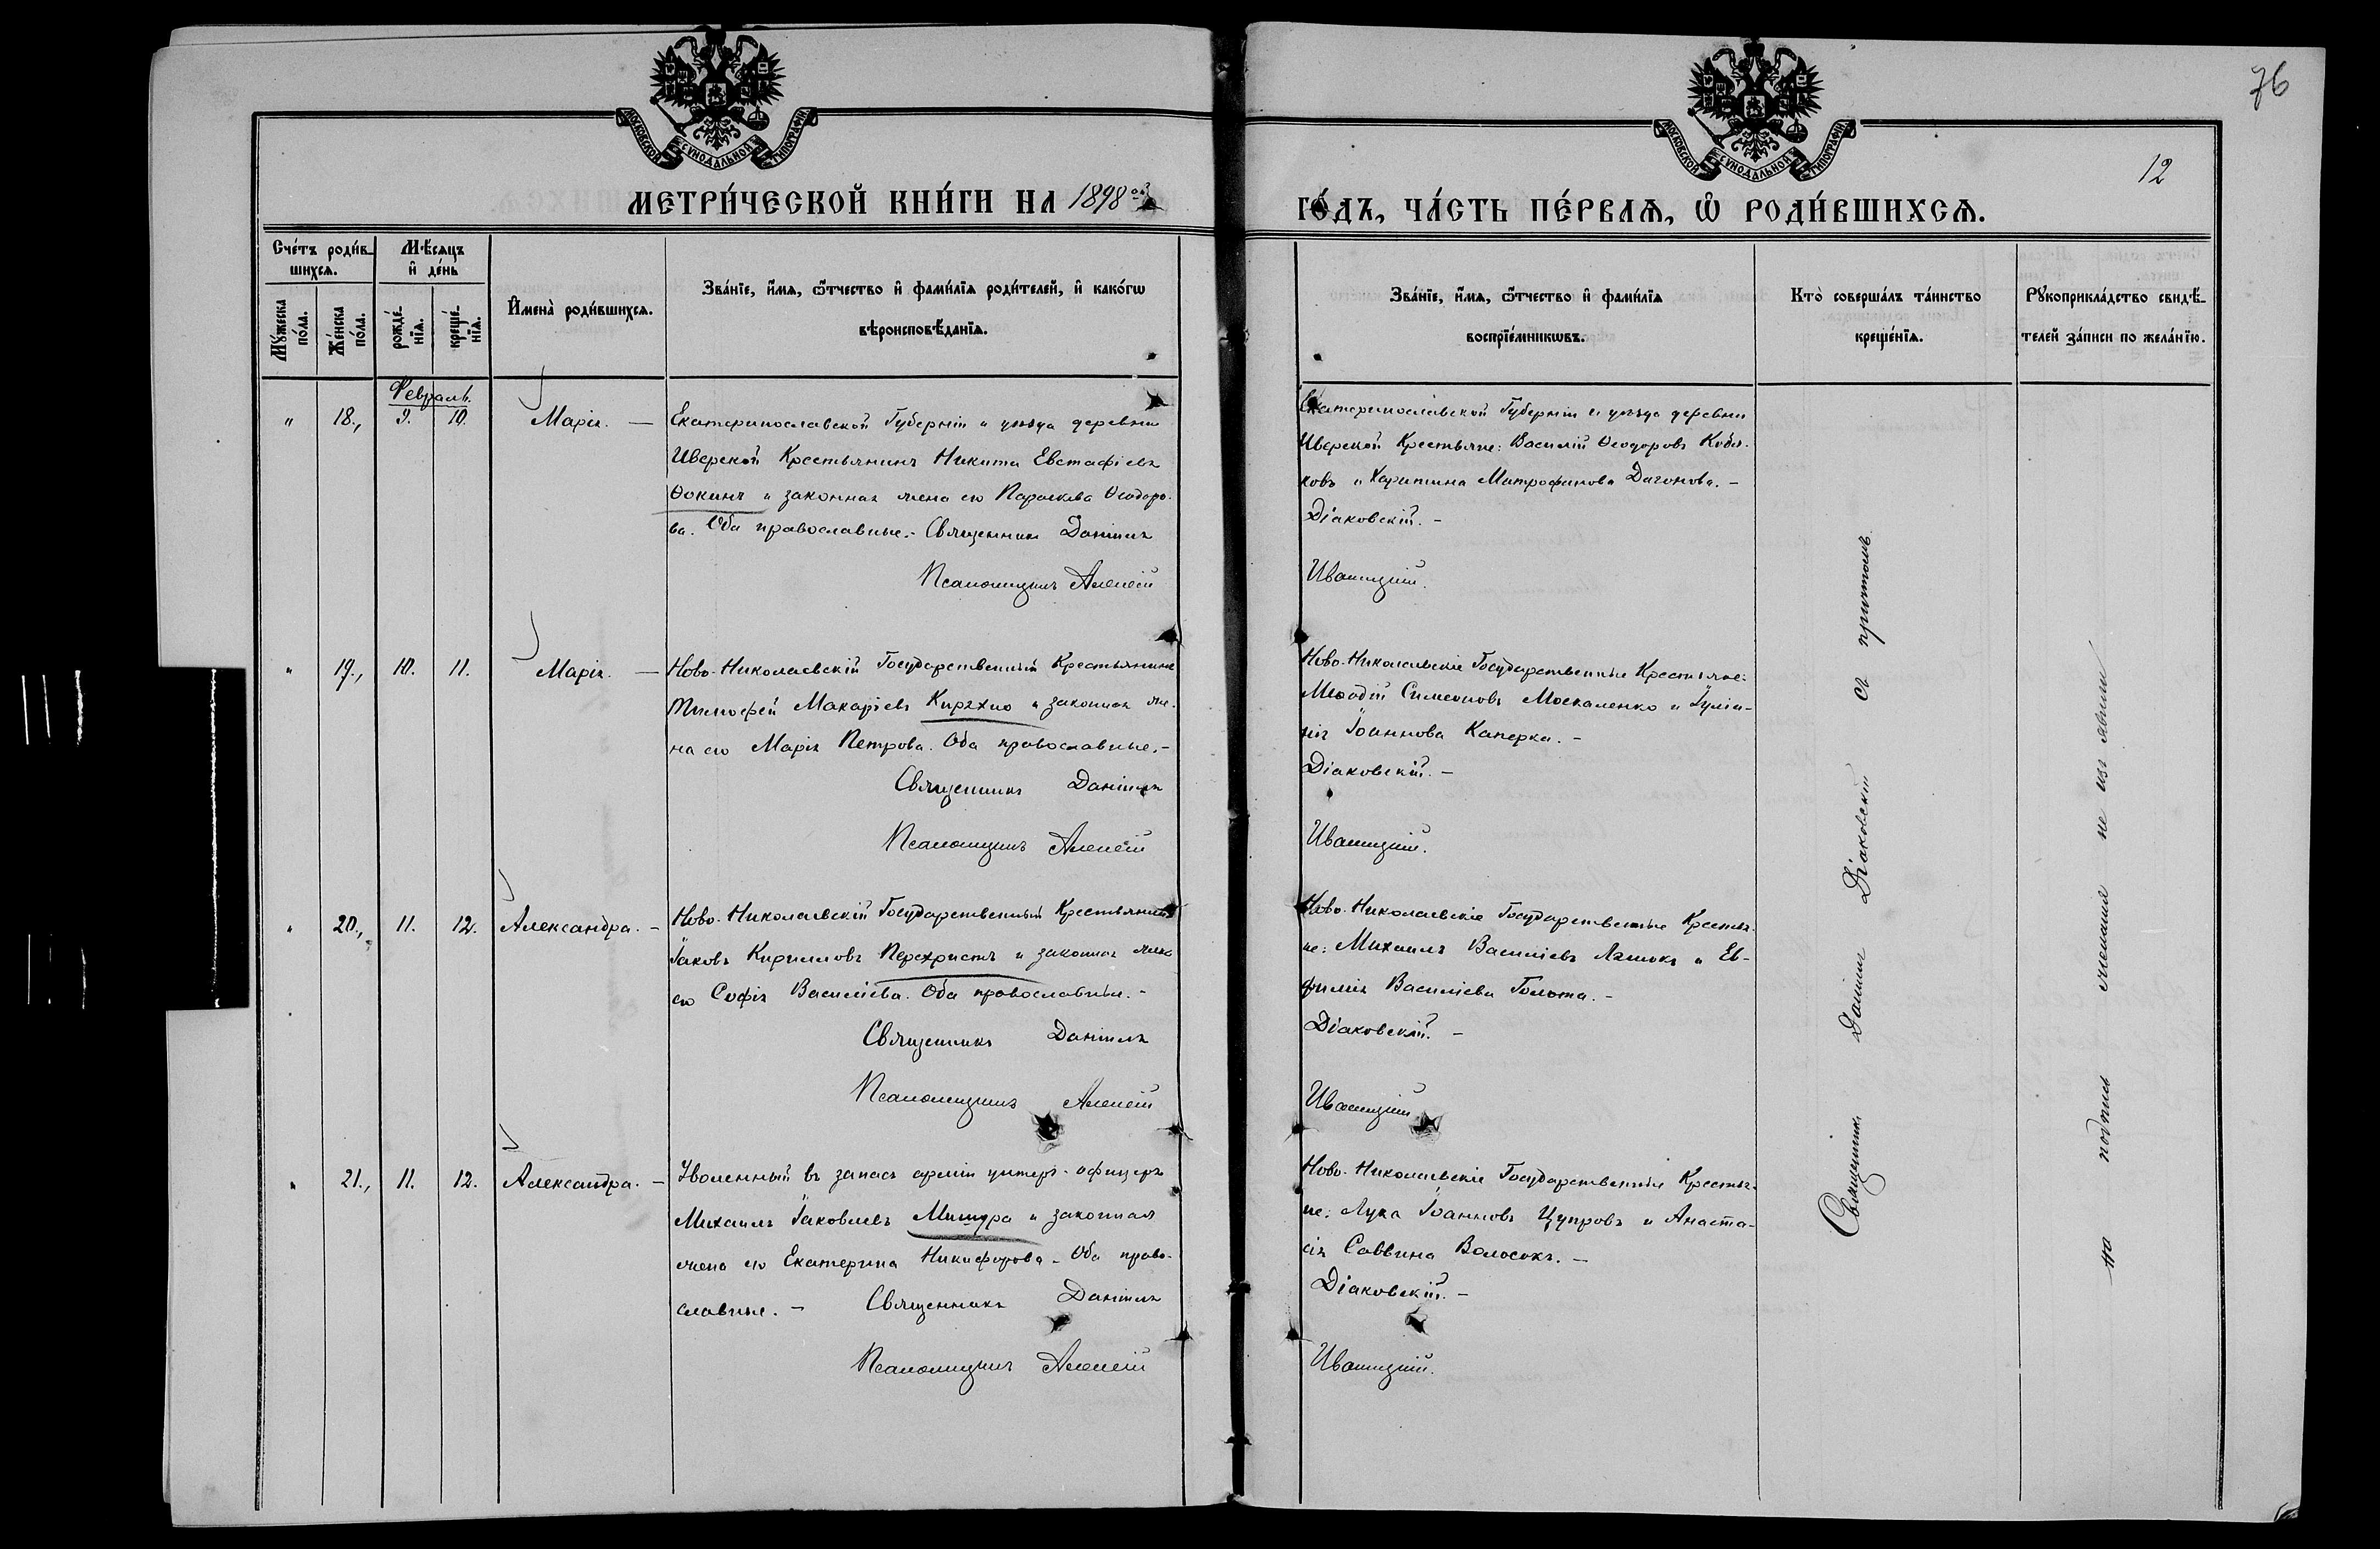 76
12
МОСКОВСКОЙ СѴНОДАЛЬНОЙ ТИПОГРАФІИ
МОСКОВСКОЙ СѴНОДАЛЬНОЙ ТИПОГРАФІИ
МЕТРИ́ЧЕСКОЙ КНИ́ГИ НА 1898ой
ГО́ДЪ, ЧА́СТЬ ПЕ́РВАѦ, Ѽ РОДИ́ВШИХСѦ.
Сче́тъ роди́в-
шихсѧ.
Мѣ́сѧцъ
и҆ де́нь
Мꙋ́жеска
по́ла.
Же́нска
по́ла.
рожде́-
нїѧ.
креще́-
нїѧ.
И҆мена̀ роди́вшихсѧ.
Зва́нїе, и҆́мѧ, ѻ҆́тчество и҆ фами́лїѧ роди́телей, и҆ како́гѡ
вѣроисповѣ́данїѧ.
Зва́нїе, и҆́мѧ, ѻ҆́тчество и҆ фами́лїѧ
воспрїе́мникѡвъ.
Кто̀ соверша́лъ та́инство
креще́нїѧ.
Рꙋкоприкла́дство свидѣ́-
телей за́писи по жела́нїю.
Февраль.
" 18., 9. 10. Марія. —
Екатеринославской Губерніи и уѣзда деревни
Иверской Крестьянинъ Никита Евстафіевъ
Ѳокинъ и законная жена его Параскева Ѳеодоро-
ва. Оба православные.- Священникъ Даніилъ
Псаломщикъ Алексій
Екатеринославской Губерніи и уѣзда деревни
Иверской Крестьяне: Василій Ѳеодоровъ Кобз-
ковъ и Харитина Митрофанова Дагонова. -
Діаковскій. -
Ивашицкій.
" 19., 10. 11. Марія. —
Ново-Николаевскій Государственный Крестьянинъ
Тимоѳей Макаріевъ Кирзхно и законная же-
на его Марія Петрова. Оба православные. -
Священникъ Даніилъ
Псаломщикъ Алексій
Ново-Николаевскіе Государственные Крестьяне:
Меѳодій Симеоновъ Москаленко и Іуліа-
нія Іоаннова Каперка. -
Діаковскій. -
Ивашицкій.
" 20., 11. 12. Александра. -
Ново-Николаевскій Государственный Крестьянинъ
Іаковъ Кирилловъ Перехристъ и законная жена
его Софія Василіева. Оба православные. -
Священникъ Даніилъ
Псаломщикъ Алексій
Ново-Николаевскіе Государственные Крестья-
не: Михаилъ Василіевъ Ляшокъ и Ев-
фимія Василіева Голота. -
Діаковскій. -
Ивашицкій.
" 21., 11. 12. Александра. -
Уволенный въ запасъ арміи унтеръ-офицеръ
Михаилъ Іаковлевъ Мишура и законная
жена его Екатерина Никифорова - Оба право-
славные. - Священникъ Даніилъ
Псаломщикъ Алексій
Ново-Николаевскіе Государственные Крестья-
не: Лука Іоанновъ Цупровъ и Анаста-
сія Саввина Волосокъ. -
Діаковскій. -
Ивашицкій.
Священникъ Даніилъ Діаковскій съ причтомъ
на подпись желанія не изъявили